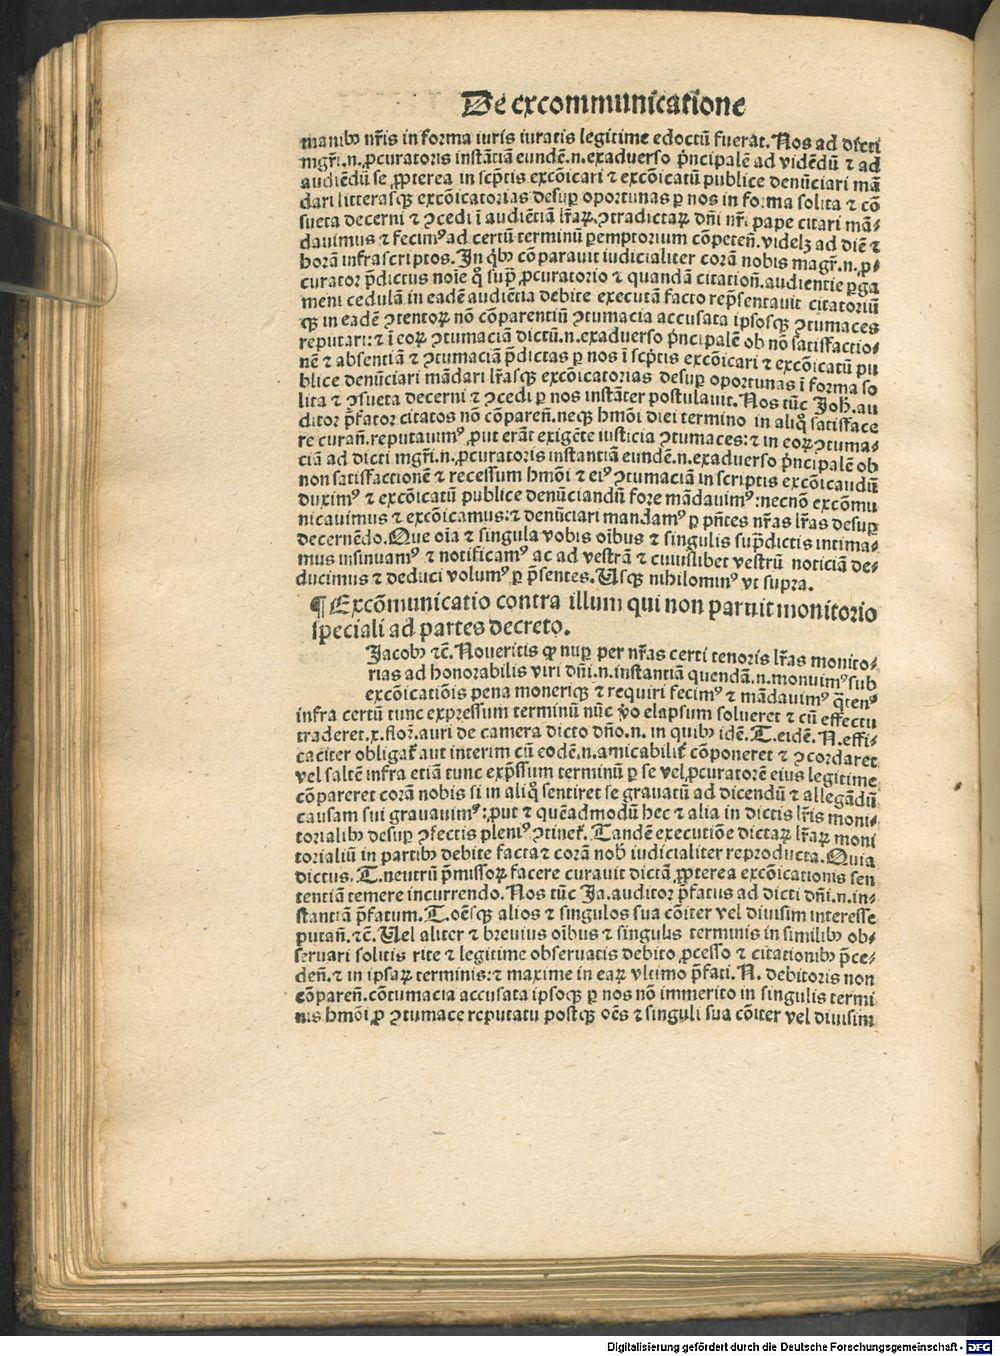 De excommunicatione
manibꝰ nr̄is in forma iuris iuratis legitime edoctū fuerat. Nos ad dicti
mgr̄i.n. ꝓcuratoris instātiā eundē.n.exaduerso pͥncipalē ad vidēdū ⁊ ad
audiēdū se ꝓpterea in scp̄tis excōicari ⁊ excōicatū publice denūciari mā
dari litterasqꝫ excōicatorias desuꝑ oportunas ꝑ nos in forma solita ⁊ cō
sueta decerni ⁊ ꝯcedi ī audiētiā lr̄aꝝ.ꝯtradictaꝝ dn̄i nr̄i pape citari mā⸗
dauimus ⁊ fecimꝰ ad certū terminū ꝑemptorium cōpeten̄.videlꝫ ad diē ⁊
horā infrascriptos. In qͥbꝰ cōparauit iudicialiter corā nobis magr̄.n. ꝓ⸗
curator p̄dictus noīe qͦ sup̄ ꝓcuratorio ⁊ quandā citation̄.audientie ꝑga
meni cedulā in eadē audiētia debite executā facto rep̄sentauit citatoriū
qꝫ in eadē ꝯtentoꝝ nō cōparentiū ꝯtumacia accusata ipsosqꝫ ꝯtumaces
reputari:⁊ ī eoꝝ ꝯtumaciā dictū.n.exaduerso pͥncipalē ob nō satisfactio⸗
nē ⁊ absentiā ⁊ ꝯtumaciā p̄dictas ꝑ nos ī scp̄tis excōicari ⁊ excōicatū pu
blice denūciari mādari lr̄asqꝫ excōicatorias desuꝑ oportunas ī forma so
lita ⁊ ꝯsueta decerni ⁊ ꝯcedi ꝑ nos instāter postulauit. Nos tūc Joh̄.au
ditor p̄fator citatos nō cōparen̄.neqꝫ hmōi diei termino in aliqͦ satisface
re curan̄.reputauimꝰ ꝓut erāt exigēte iusticia ꝯtumaces:⁊ in eoꝝ ꝯtuma⸗
ciā ad dicti mgr̄i.n. ꝓcuratoris instantiā eundē.n.exaduerso pͥncipalē ob
non satisfactionē ⁊ recessum hmōi ⁊ eiꝰ ꝯtumaciā in scriptis excōicaudū
duximꝰ ⁊ excōicatū publice denūciandū fore mādauimꝰ:necnō excōmu
nicauimus ⁊ excōicamus:⁊ denūciari mandamꝰ ꝑ pn̄tes nr̄as lr̄as desuꝑ
decernēdo. Que oīa ⁊ singula vobis oībus ⁊ singulis sup̄dictis intima⸗
mus insinuamꝰ ⁊ notificamꝰ ac ad vestrā ⁊ cuiuslibet vestrū noticiā de⸗
ducimus ⁊ deduci volumꝰ ꝑ p̄sentes. Usqꝫ nihilominꝰ vt supra.
¶ Excōmunicatio contra illum qui non paruit monitorio
speciali ad partes decreto.
Jacobꝰ ⁊c̄. Noueritis qꝙ nuꝑ per nr̄as certi tenoris lr̄as monito⸗
rias ad honorabilis viri dn̄i.n.instantiā quendā.n.monuimꝰ sub
excōicatiōis pena moneriqꝫ ⁊ requiri fecimꝰ ⁊ mādauimꝰ qͣtenꝰ
infra certū tunc expressum terminū nūc ꝟo elapsum solueret ⁊ cū effectu
traderet.x.flor̄.auri de camera dicto dn̄o.n. in quibꝰ idē. T.eidē. N.effi⸗
caciter obligat̄ aut interim cū eodē.n.amicabilit̄ cōponeret ⁊ ꝯcordaret
vel saltē infra etiā tunc exp̄ssum terminū ꝑ se vel ꝓcuratorē eius legitime
cōpareret corā nobis si in aliqͦ sentiret se grauatū ad dicendū ⁊ allegādū
causam sui grauaminꝰ:ꝓut ⁊ quēadmodū hec ⁊ alia in dictis lr̄is moni⸗
torialibꝰ desuꝑ ꝯfectis pleniꝰ ꝯtinet̄. Tandē executiōe dictaꝝ lr̄aꝝ moni
torialiū in partibꝰ debite facta ⁊ corā nob̄ iudicialiter reproducta. Quia
dictus. T.neutrū p̄missoꝝ facere curauit dictā ꝓpterea excōicationis sen
tentiā temere incurrendo. Nos tūc Ja.auditor p̄fatus ad dicti dn̄i.n.in⸗
stantiā p̄fatum. T.oēsqꝫ alios ⁊ singulos sua cōiter vel diuisim interesse
putan̄.⁊c̄. Uel aliter ⁊ breuius oībus ⁊ singulis terminis in similibꝰ ob⸗
seruari solitis rite ⁊ legitime obseruatis debito ꝓcesso ⁊ citationibꝰ p̄ce⸗
den̄.⁊ in ipsaꝝ terminis:⁊ maxime in eaꝝ vltimo p̄fati. N. debitoris non
cōparen̄.cōtumacia accusata ipsoqꝫ ꝑ nos nō immerito in singulis termi
nis hmōi ꝓ ꝯtumace reputatu postqꝫ oēs ⁊ singuli sua cōiter vel diuisim
Digitalisierung gefördert durch die Deutsche Forschungsgemeinschaft - DFG